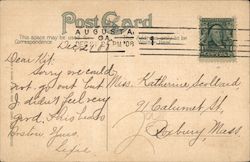 Post Card
This space may be used
Correspondence
AUGUSTA
GA.
DEC 27
1908
Dec 27
Dear Kit:
Sorry we could
not go out but
I didn't feel very
good. This beats
Boston. Yours,
Miss Katherine Scolland,
Calumet St.
Roxbury Mass